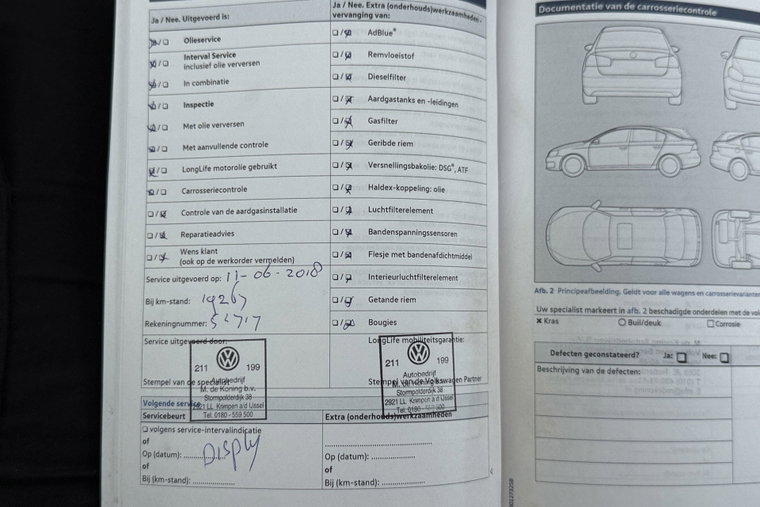 Ja / Nee. Uitgevoerd is:
Olieservice
Interval Service
inclusief olie verversen
In combinatie
Inspectie
Met olie verversen
Met aanvullende controle
LongLife motorolie gebruikt
Carrosseriecontrole
Controle van de aardgasinstallatie
Reparatieadvies
Wens klant
(ook op de werkorder vermelden)
Service uitgevoerd op: 11-06-2018
Bij km-stand: 19267
Rekeningnummer:
Service uitgevoerd door:
211 199
Stempel van de specialist
Autobedrijf
M. de Koning b.v.
Stormpolderdijk 38
2921 LL Krimpen a/d IJssel
Tel. 0180 - 559 500
Volgende service
Servicebeurt
volgens service-intervalindicatie
of
Op (datum): Disply
of
Bij (km-stand):
Ja / Nee. Extra (onderhouds)werkzaamheden -
vervanging van:
AdBlue®
Remvloeistof
Dieselfilter
Aardgastanks en -leidingen
Gasfilter
Geribde riem
Versnellingsbakolie: DSG®, ATF
Haldex-koppeling: olie
Luchtfilterelement
Bandenspanningssensoren
Flesje met bandenafdichtmiddel
Interieurluchtfilterelement
Getande riem
Bougies
LongLife mobiliteitsgarantie:
211 199
Autobedrijf
Stempel van de Volkswagen Partner
Stormpolderdijk 38
2921 LL Krimpen a/d IJssel
Tel. 0180 -
Extra (onderhouds)werkzaamheden
Op (datum):
of
Bij (km-stand):
Documentatie van de carrosseriecontrole
Afb. 2 Principeafbeelding. Geldt voor alle wagens en carrosserievarianten
Uw specialist markeert in afb. 2 beschadigde onderdelen met de
Kras Buil/deuk Corrosie
Defecten geconstateerd? Ja: Nee:
Beschrijving van de defecten: